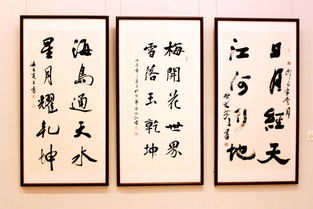 日月經天
江河行地
梅開花世界
雪落玉乾坤
海島通天水
星月耀乾坤